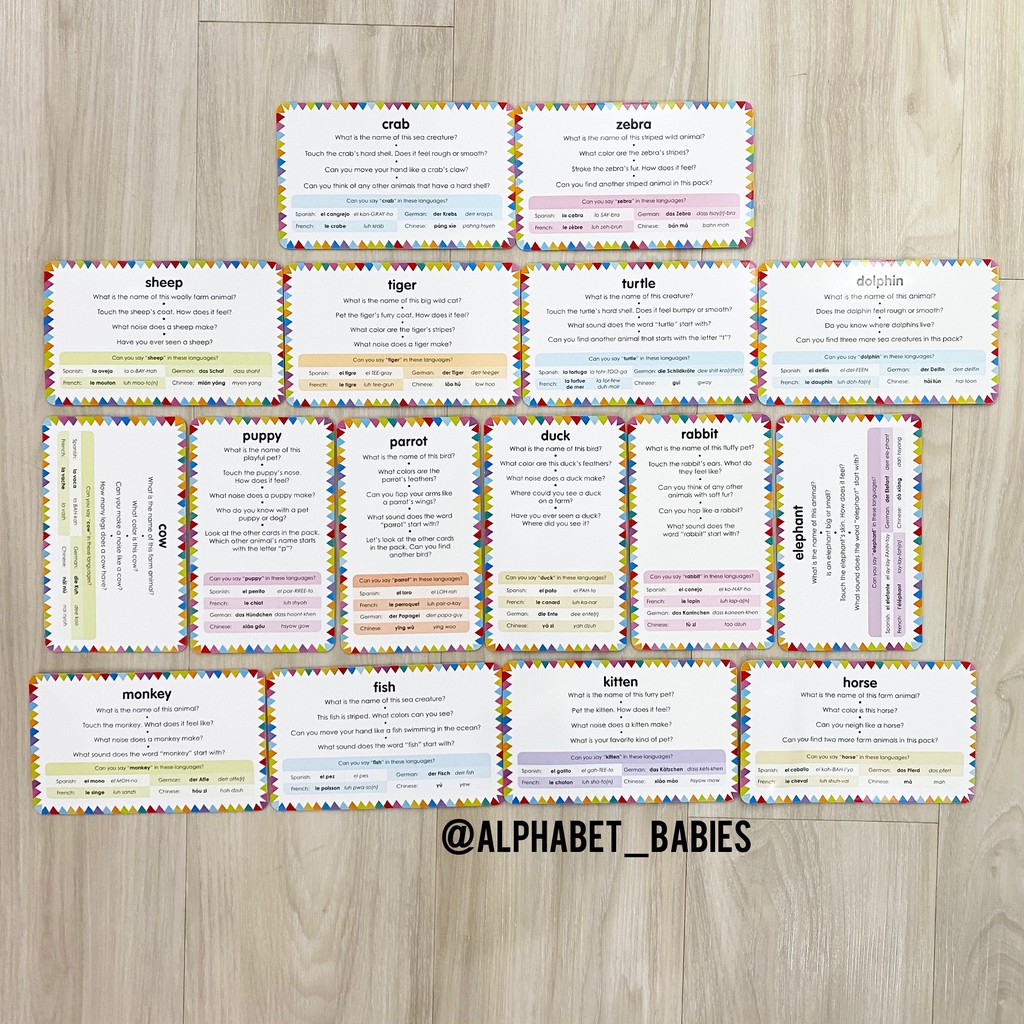 crab
What is the name of this sea creature?
Touch the crab's hard shell. Does it feel rough or smooth?
Can you move your hand like a crab's claw?
Can you think of any other animals that have a hard shell?
Can you say "crab" in these languages?
Spanish: el cangrejo el kan-GRAY-ho German: der Krebs deir krayps
French: le crabe luh krab Chinese: páng xiè pahng-hsyeh
zebra
What is the name of this striped wild animal?
What color are the zebra's stripes?
Stroke the zebra's fur. How does it feel?
Can you find another striped animal in this pack?
Can you say "zebra" in these languages?
Spanish: la cebra la SAY-bra German: das Zebra dass tsay(r)-bra
French: le zèbre luh zeh-bruh Chinese: bān mǎ bahn mah
sheep
What is the name of this woolly farm animal?
Touch the sheep's coat. How does it feel?
What noise does a sheep make?
Have you ever seen a sheep?
Can you say "sheep" in these languages?
Spanish: la oveja la o-BAY-Hah German: das Schaf dass shahf
French: le mouton luh moo-to(n) Chinese: mián yáng myen yang
tiger
What is the name of this big wild cat?
Pet the tiger's furry coat. How does it feel?
What color are the tiger's stripes?
What noise does a tiger make?
Can you say "tiger" in these languages?
Spanish: el tigre el TEE-gray German: der Tiger deir teeger
French: le tigre luh tee-gruh Chinese: lǎo hǔ low hoo
turtle
What is the name of this creature?
Touch the turtle's hard shell. Does it feel bumpy or smooth?
What sound does the word "turtle" start with?
Can you find another animal that starts with the letter "t"?
Can you say "turtle" in these languages?
Spanish: la tortuga la tohr-TOO-ga German: die Schildkröte
French: la tortue de mer la tor-tew duh mair Chinese: guī gway
dolphin
What is the name of this animal?
Does the dolphin feel rough or smooth?
Do you know where dolphins live?
Can you find three more sea creatures in this pack?
Can you say "dolphin" in these languages?
Spanish: el delfín el del-FEEN German: der Delfin deir delfin
French: le dauphin luh doh-fa(n) Chinese: hǎi tún hai toon
cow
What is the name of this farm animal?
What color is this cow?
Can you make a noise like a cow?
How many legs does a cow have?
Can you say "cow" in these languages?
Spanish: la vaca la BAH-kah German: die Kuh dee koo
French: la vache la vash Chinese: nǎi niú nai nyoh
puppy
What is the name of this
playful pet?
Touch the puppy's nose.
How does it feel?
What noise does a puppy make?
Who do you know with a pet
puppy or dog?
Look at the other cards in the pack.
Which other animal's name starts
with the letter "p"?
Can you say "puppy" in these languages?
Spanish: el perrito el pair-RREE-to
French: le chiot luh shyoh
German: das Hündchen dass hoont-khen
Chinese: xiǎo gǒu hsyaow gow
parrot
What is the name of this bird?
What colors are the
parrot's feathers?
Can you flap your arms like
a parrot's wings?
What sound does the word
"parrot" start with?
Let's look at the other cards
in the pack. Can you find
another bird?
Can you say "parrot" in these languages?
Spanish: el loro el LOH-roh
French: le perroquet luh pair-o-kay
German: der Papagei der papa-guy
Chinese: yīng wǔ ying woo
duck
What is the name of this bird?
What color are this duck's feathers?
What noise does a duck make?
Where could you see a duck
on a farm?
Have you ever seen a duck?
Where did you see it?
Can you say "duck" in these languages?
Spanish: el pato el PAH-to
French: le canard luh ka-nar
German: die Ente dee ente(r)
Chinese: yā zi yah dzuh
rabbit
What is the name of this fluffy pet?
Touch the rabbit's ears. What do
they feel like?
Can you think of any other
animals with soft fur?
Can you hop like a rabbit?
What sound does the
word "rabbit" start with?
Can you say "rabbit" in these languages?
Spanish: el conejo el ko-NAY-ho
French: le lapin luh lap-a(n)
German: das Kaninchen dass kaneen-khen
Chinese: tù zi too dzuh
elephant
What is the name of this animal?
Is an elephant big or small?
Touch the elephant's skin. How does it feel?
What sound does the word "elephant" start with?
Can you say "elephant" in these languages?
Spanish: el elefante el ay-lay-FAHN-tay German: der Elefant deir ele-phant
French: l'éléphant lay-lay-fah(n) Chinese: dà xiàng dah hsyang
monkey
What is the name of this animal?
Touch the monkey. What does it feel like?
What noise does a monkey make?
What sound does the word "monkey" start with?
Can you say "monkey" in these languages?
Spanish: el mono el MOH-no German: der Affe deir affe(r)
French: le singe luh sanzh Chinese: hóu zi hoh dzuh
fish
What is the name of this sea creature?
This fish is striped. What colors can you see?
Can you move your hand like a fish swimming in the ocean?
What sound does the word "fish" start with?
Can you say "fish" in these languages?
Spanish: el pez el pes German: der Fisch deir fish
French: le poisson luh pwa-so(n) Chinese: yú yew
kitten
What is the name of this furry pet?
Pet the kitten. How does it feel?
What noise does a kitten make?
What is your favorite kind of pet?
Can you say "kitten" in these languages?
Spanish: el gatito el gah-TEE-to German: das Kätzchen dass kets-khen
French: le chaton luh sha-to(n) Chinese: xiǎo māo hsyaow mow
horse
What is the name of this farm animal?
What color is this horse?
Can you neigh like a horse?
Can you find two more farm animals in this pack?
Can you say "horse" in these languages?
Spanish: el caballo el kah-BAH-l'yo German: das Pferd dass pfert
French: le cheval luh shuh-val Chinese: mǎ mah
@ALPHABET_BABIES